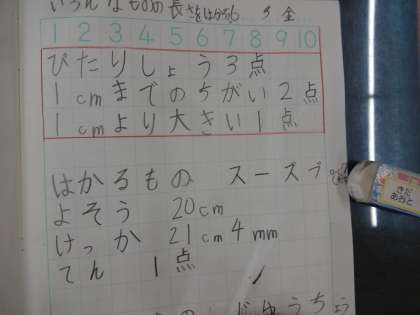 いろんなものの長さをはかろう 3 金
1 2 3 4 5 6 7 8 9 10
ぴたりしょう3点
1cmまでのちがい2点
1cmより大きい1点
はかるもの スーズブ
よそう 20cm
けっか 21cm4mm
てん 1点
きだ
あおと